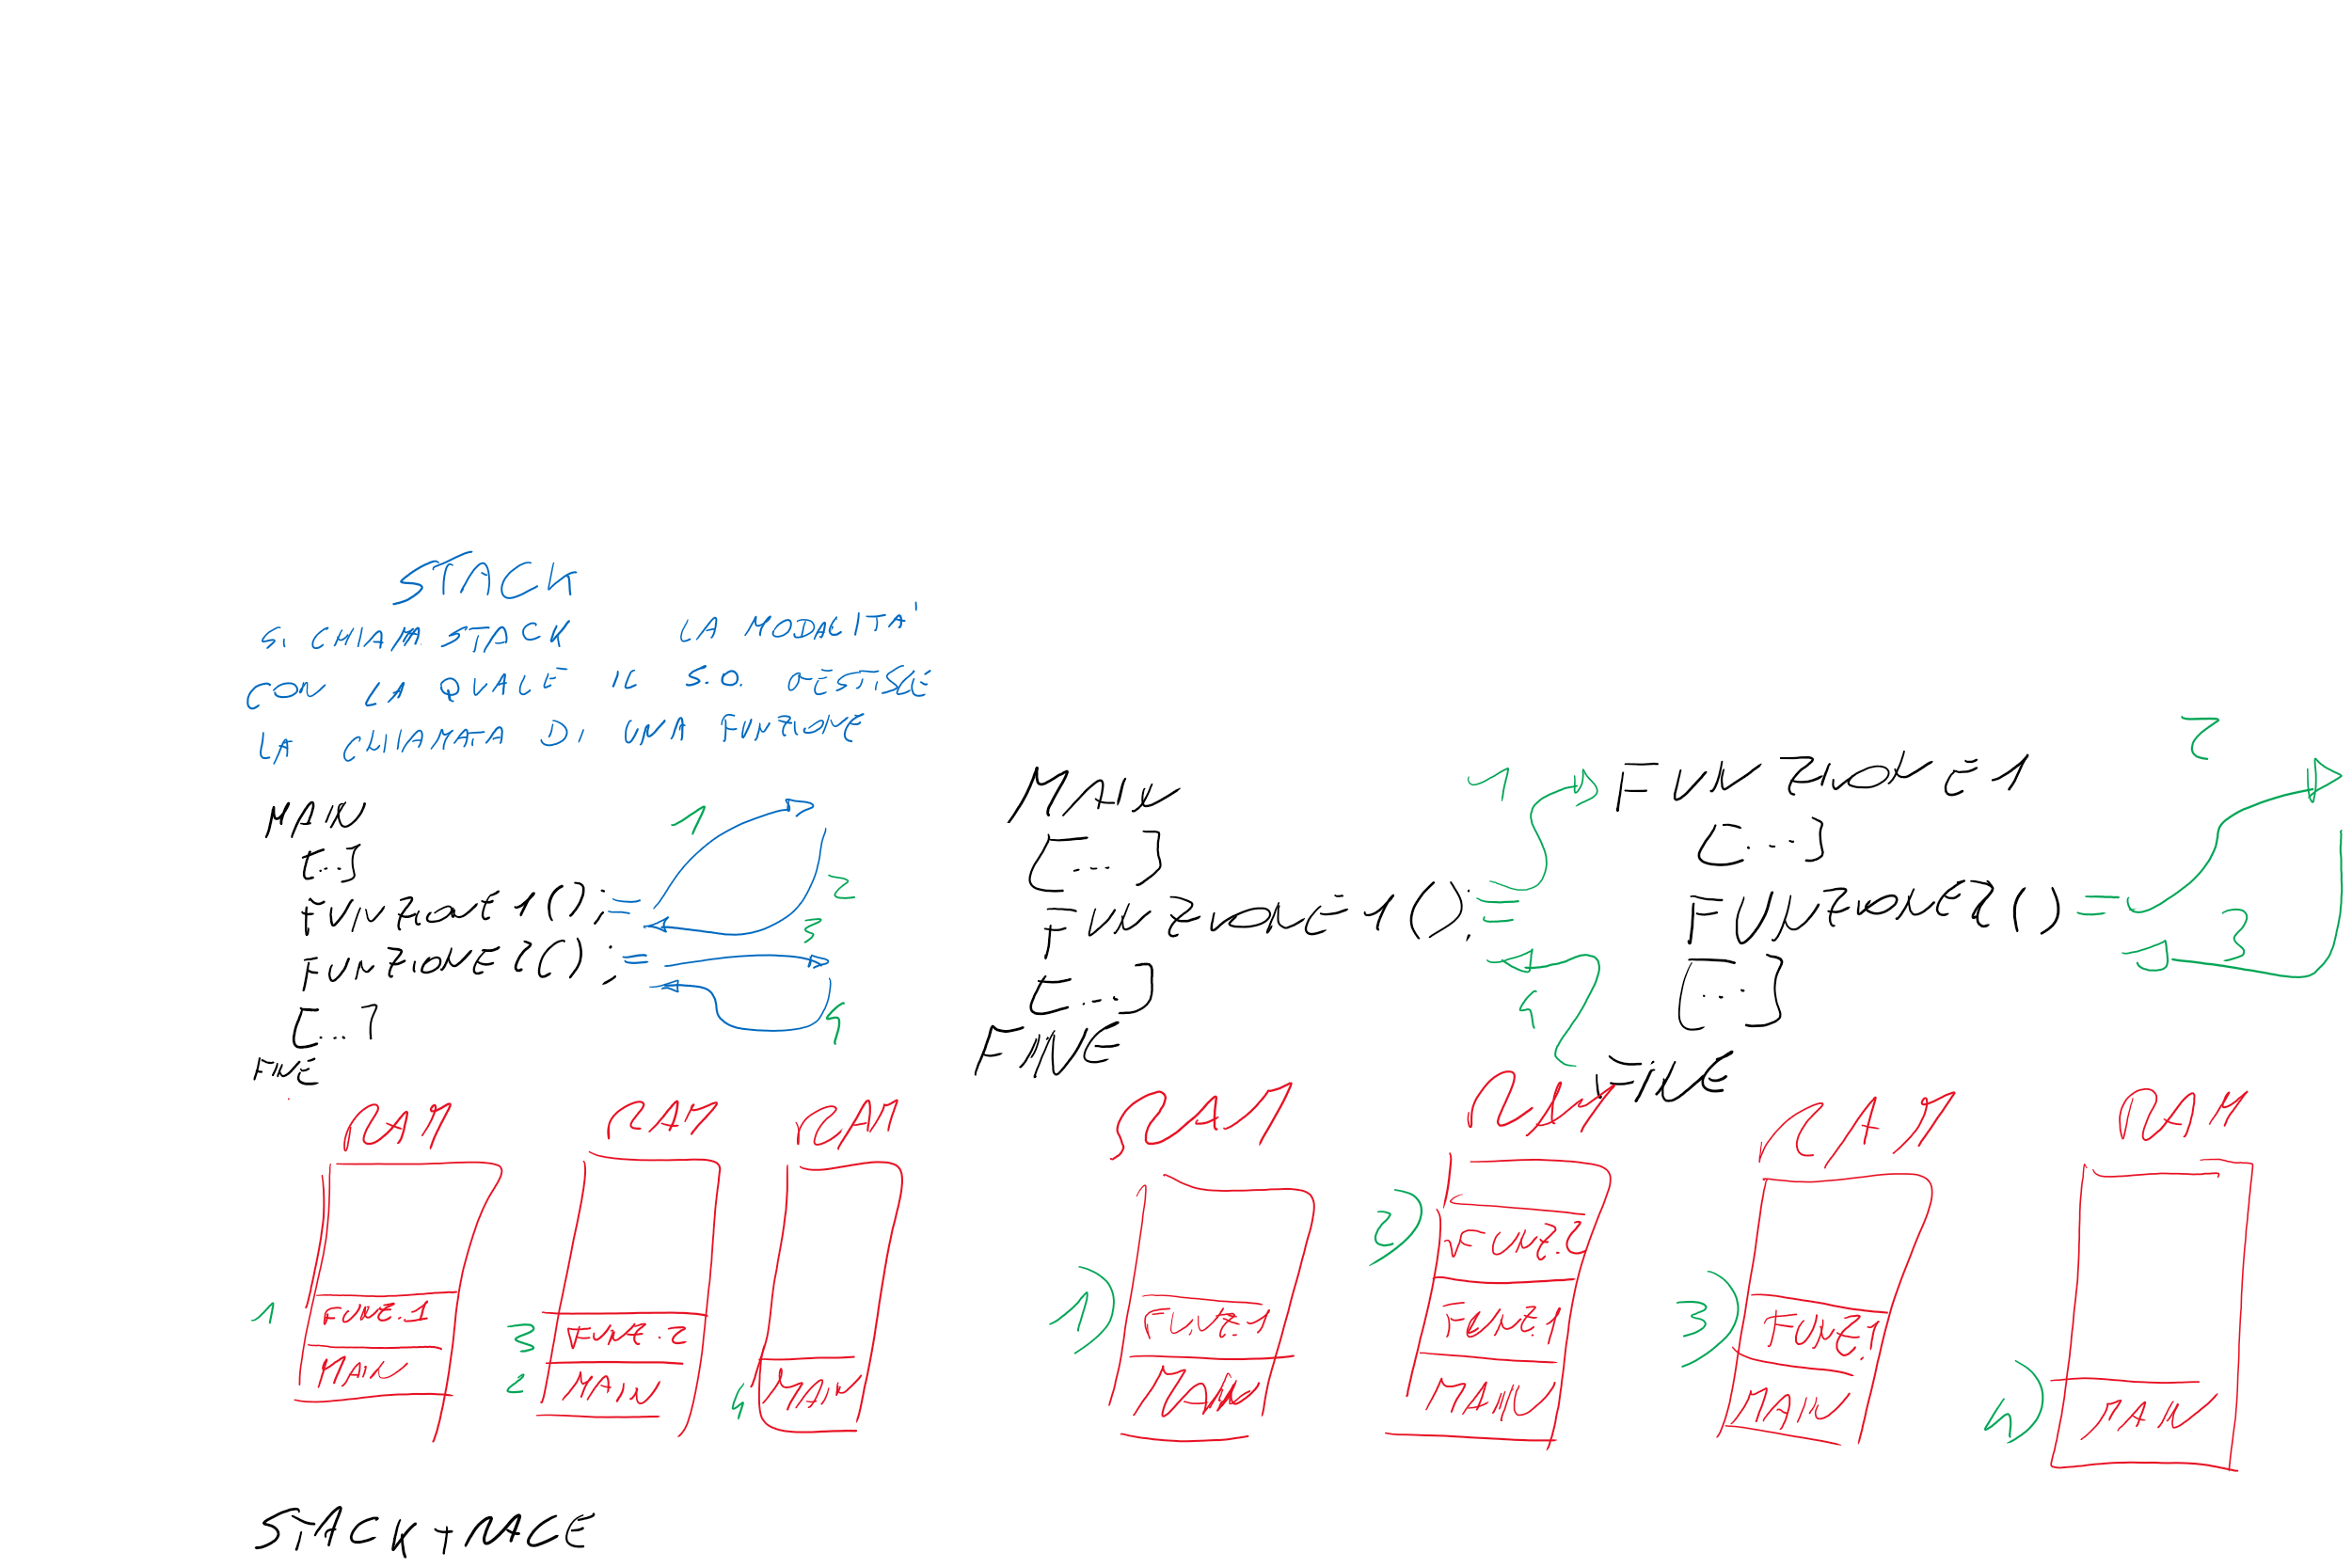 STACK
SI CHIAMA STACK LA MODALITA'
CON LA QUALE IL S.O. GESTISCE
LA CHIAMATA DI UNA FUNZIONE
MAIN
[...]
FUNZIONE1();
FUNZIONE2();
[...]
FINE
1
2
3
4
MAIN
[...]
FUNZIONE1();
[...]
FINE
1
4
FUNZIONE1
[...]
FUNZIONE2()
[...]
FINE
2
3
RAM
1 FUNZ.1
MAIN
RAM
3 FUNZ.2
2 MAIN
RAM
4 MAIN
RAM
1) FUNZ.1
MAIN
RAM
2) FUNZ.2
FUNZ.1
MAIN
RAM
3) FUNZ.1
MAIN
RAM
4) MAIN
STACKTRACE